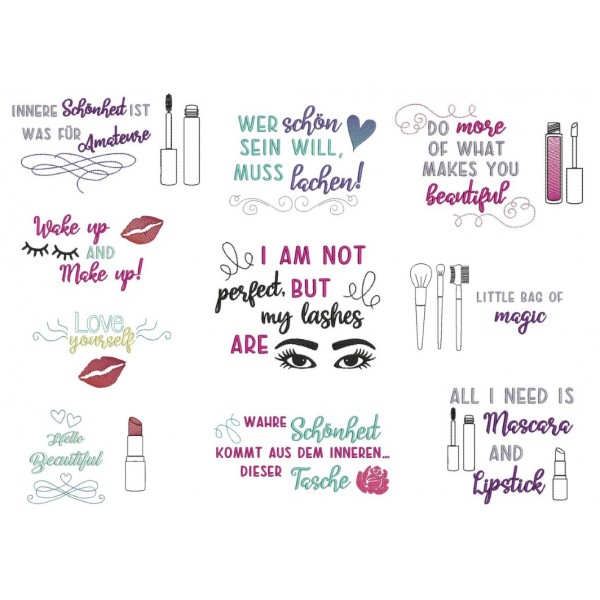 INNERE Schönheit IST
WAS FÜR Amateure
WER schön
SEIN WILL,
MUSS lachen!
DO more
OF WHAT
MAKES YOU
beautiful
Wake up
AND
Make up!
I AM NOT
perfect, BUT
my lashes
ARE
LITTLE BAG OF
magic
Love
yourself
Hello
Beautiful
WAHRE Schönheit
KOMMT AUS DEM INNEREN...
DIESER Tasche
ALL I NEED IS
Mascara
AND
Lipstick